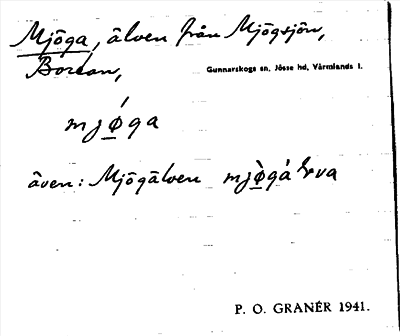 Mjöga, älven från Mjögsjön,
Borean,
Gunnarskogs sn, Jösse hd, Värmlands l.
mjǿ̱ga
även: Mjögälven
P. O. GRANÉR 1941.